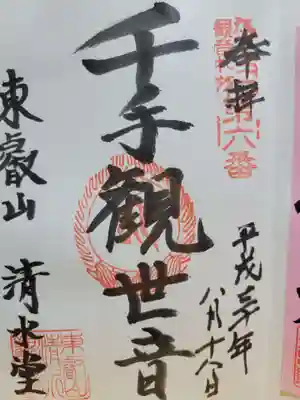 奉拝
第六番
平成三十年
八月十八日
千手観世音
東叡山 清水堂